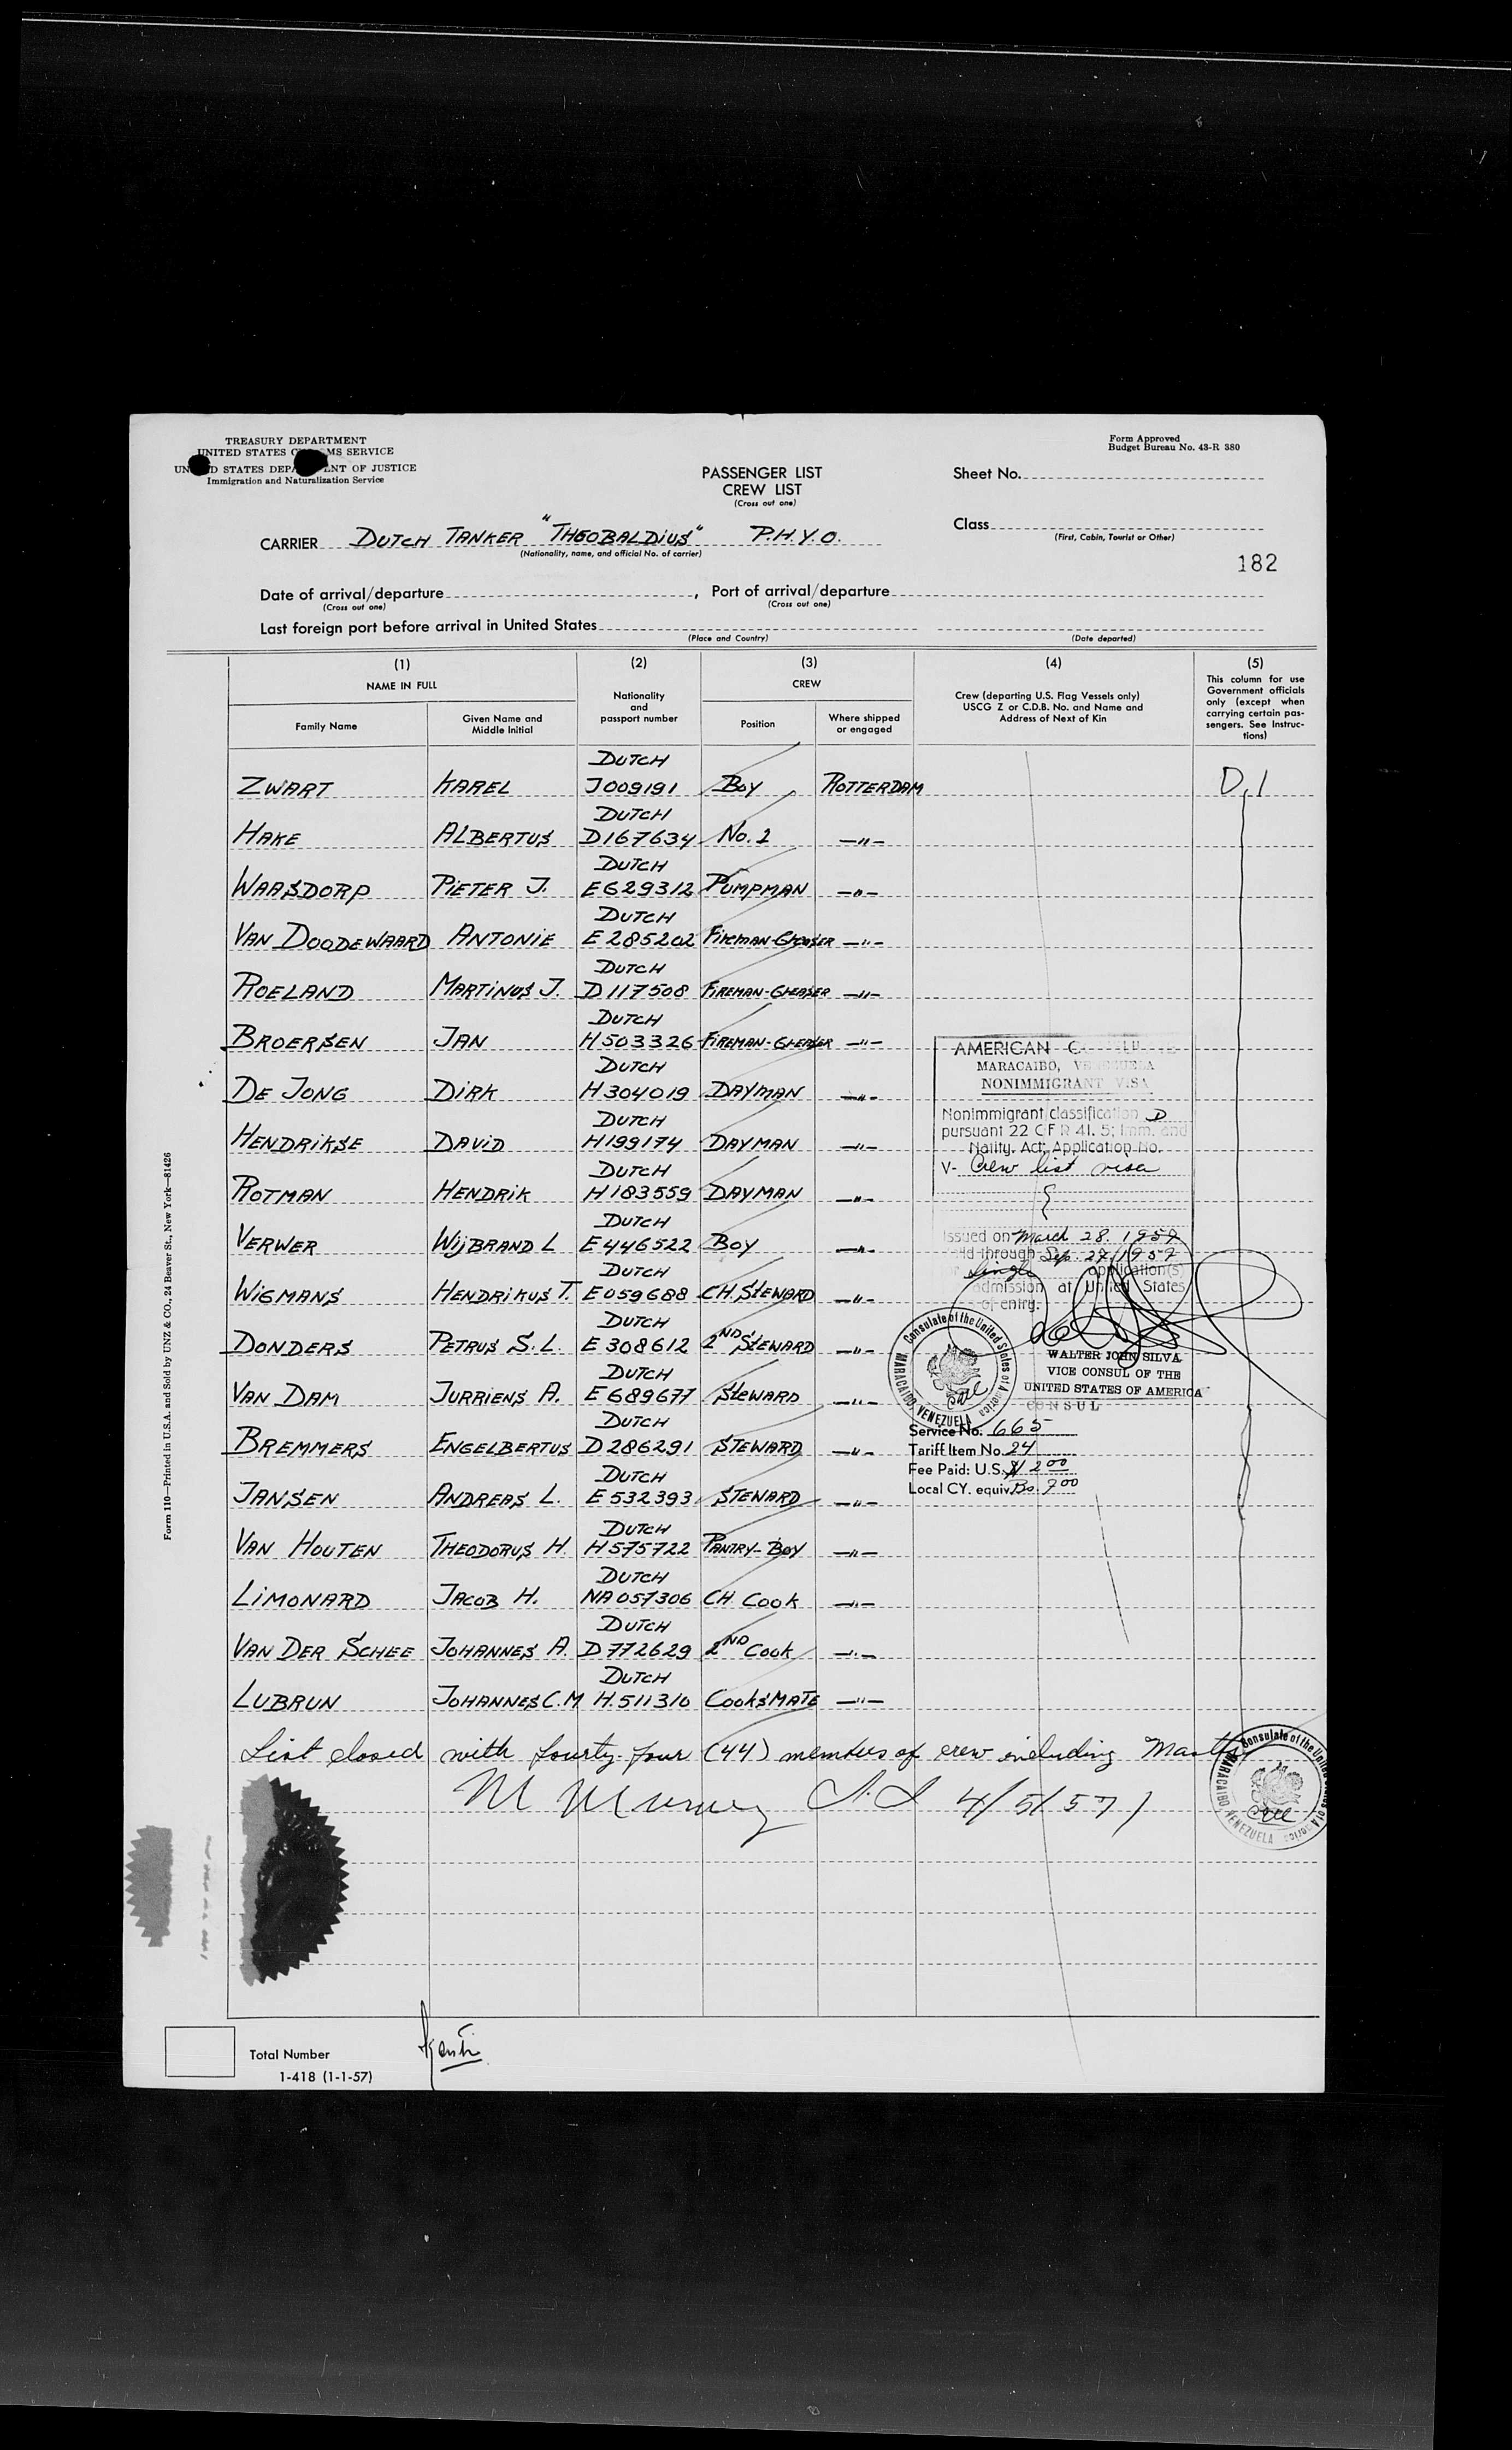 TREASURY DEPARTMENT
UNITED STATES C MS SERVICE
UN D STATES DEPA ENT OF JUSTICE
Immigration and Naturalization Service
Form Approved
Budget Bureau No. 43-R 380
PASSENGER LIST
CREW LIST
(Cross out one)
Sheet No.
CARRIER DUTCH TANKER "THEOBALDIUS" P.H.Y.O.
(Nationality, name, and official No. of carrier)
Class
(First, Cabin, Tourist or Other)
182
Date of arrival/departure , Port of arrival/departure
(Cross out one) (Cross out one)
Last foreign port before arrival in United States
(Place and Country) (Date departed)
(1) (2) (3) (4) (5)
NAME IN FULL
Family Name
Given Name and
Middle Initial
Nationality
and
passport number
CREW
Position
Where shipped
or engaged
Crew (departing U.S. Flag Vessels only)
USCG Z or C.D.B. No. and Name and
Address of Next of Kin
This column for use
Government officials
only (except when
carrying certain pas-
sengers. See Instruc-
tions)
DUTCH
ZWART KAREL J009191 BOY ROTTERDAM D.1
DUTCH
HAKE ALBERTUS D167634 No. 2 —"—
DUTCH
WAASDORP PIETER J. E629312 PUMPMAN —"—
DUTCH
VAN DOODEWAARD ANTONIE E285202 FIREMAN-GREASER —"—
DUTCH
ROELAND MARTINUS J. D117508 FIREMAN-GREASER —"—
DUTCH
BROERSEN JAN H503326 FIREMAN-GREASER —"—
DUTCH
DE JONG DIRK H304019 DAYMAN —"—
DUTCH
HENDRIKSE DAVID H199174 DAYMAN —"—
DUTCH
ROTMAN HENDRIK H183559 DAYMAN —"—
DUTCH
VERWER WIJBRAND L E446522 BOY —"—
DUTCH
WIGMANS HENDRIKUS T. E059688 CH. STEWARD —"—
DUTCH
DONDERS PETRUS S. L. E308612 2ND STEWARD —"—
DUTCH
VAN DAM JURRIENS A. E689677 STEWARD —"—
DUTCH
BREMMERS ENGELBERTUS D286291 STEWARD —"—
DUTCH
JANSEN ANDREAS L. E532393 STEWARD —"—
DUTCH
VAN HOUTEN THEODORUS H. H575722 PANTRY-BOY —"—
DUTCH
LIMONARD JACOB H. NA057306 CH COOK —"—
DUTCH
VAN DER SCHEE JOHANNES A. D772629 2ND COOK —"—
DUTCH
LUBRUN JOHANNES C.M. H.511310 COOKSMATE —"—
AMERICAN C
MARACAIBO, VENEZUELA
NONIMMIGRANT VISA
Nonimmigrant classification D
pursuant 22 CFR 41. 5; Imm. and
Natity. Act; Application No.
V- Crew list visa
Issued on March 28. 1957
lid through Sep. 27, 1957
single application(s)
admission at United States
of entry.
WALTER JOHN SILVA
VICE CONSUL OF THE
UNITED STATES OF AMERICA
CONSUL
Consulate of the United States of America
MARACAIBO VENEZUELA
Service No. 665
Tariff Item No. 24
Fee Paid: U.S. $ 2 00
Local CY. equiv. Bo. 7 00
List closed with fourty-four (44) members of crew including Master
M 4/5/57
Consulate of the Unit s of America
MARACAIBO VENEZUELA
Total Number
1-418 (1-1-57)
Form 110—Printed in U.S.A. and Sold by UNZ & CO., 24 Beaver St., New York—81426